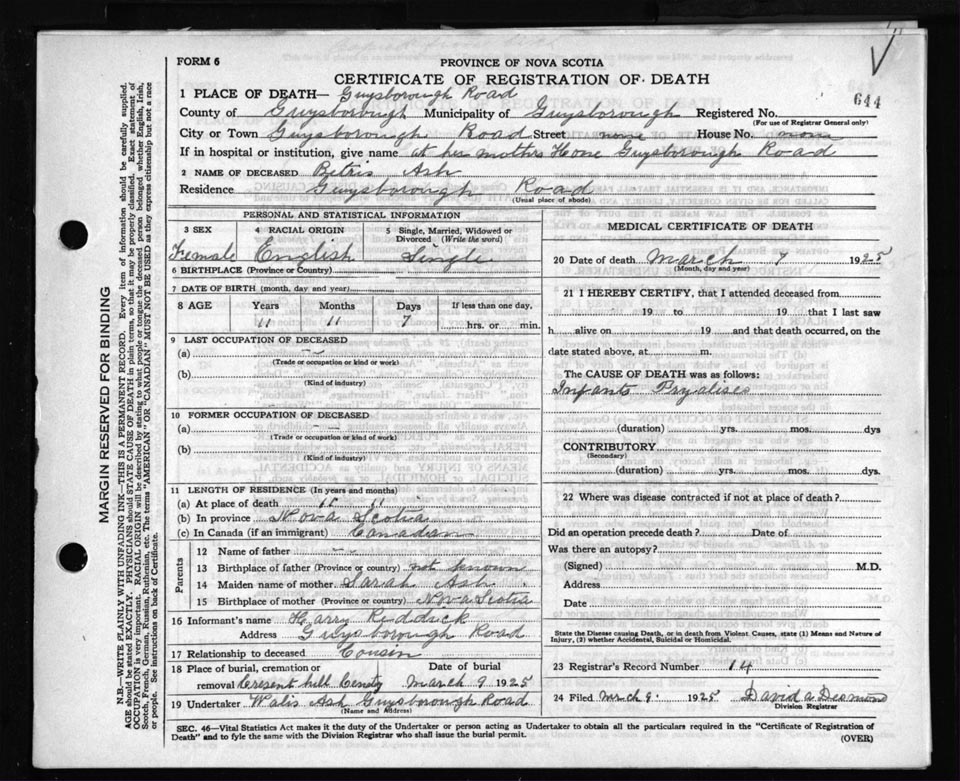 644
FORM 6
PROVINCE OF NOVA SCOTIA
CERTIFICATE OF REGISTRATION OF DEATH
1 PLACE OF DEATH— Guysborough Road
County of Guysborough Municipality of Guysborough Registered No.
(For use of Registrar General only)
City or Town Guysborough Road Street none House No. none
If in hospital or institution, give name at her mothers Hone Guysborough Road
2 NAME OF DECEASED Betris Ash
Residence Guysborough Road
(Usual place of abode)
PERSONAL AND STATISTICAL INFORMATION
3 SEX 4 RACIAL ORIGIN 5 Single, Married, Widowed or Divorced (Write the word)
Female English Single
6 BIRTHPLACE (Province or Country)
7 DATE OF BIRTH (month, day and year)
8 AGE Years Months Days If less than one day,
11 11 7 hrs. or min.
9 LAST OCCUPATION OF DECEASED
(a) - -
(Trade or occupation or kind of work)
(b)
(Kind of industry)
10 FORMER OCCUPATION OF DECEASED
(a) - -
(Trade or occupation or kind of work)
(b)
(Kind of industry)
11 LENGTH OF RESIDENCE (In years and months)
(a) At place of death 11 11
(b) In province Nova Scotia
(c) In Canada (if an immigrant) Canadian
Parents
12 Name of father - -
13 Birthplace of father (Province or country) not known
14 Maiden name of mother Sarah Ash
15 Birthplace of mother (Province or country) Nova Scotia
16 Informant's name Harry Reddick
Address Guysborough Road
17 Relationship to deceased Cousin
18 Place of burial, cremation or Date of burial
removal Cresent hill Cemty March 9 1925
19 Undertaker Walis Ash Guysborough Road
(Name and Address)
MEDICAL CERTIFICATE OF DEATH
20 Date of death March 7 1925
(Month, day and year)
21 I HEREBY CERTIFY, that I attended deceased from
19 to 19 that I last saw
h alive on 19 and that death occurred, on the
date stated above, at m.
The CAUSE OF DEATH was as follows:
Infants Pryalises
(duration) yrs. mos. dys
CONTRIBUTORY
(Secondary)
(duration) yrs. mos. dys.
22 Where was disease contracted if not at place of death?
Did an operation precede death? Date of
Was there an autopsy?
(Signed) M.D.
Address
Date
State the Disease causing Death, or in death from Violent Causes, state (1) Means and Nature of
Injury, (2) whether Accidental, Suicidal or Homicidal.
23 Registrar's Record Number 14
24 Filed March 9 1925 David A Desmond
Division Registrar
SEC. 46—Vital Statistics Act makes it the duty of the Undertaker or person acting as Undertaker to obtain all the particulars required in the "Certificate of Registration of
Death" and to fyle the same with the Division Registrar who shall issue the burial permit.
(OVER)
MARGIN RESERVED FOR BINDING
N.B.—WRITE PLAINLY WITH UNFADING INK—THIS IS A PERMANENT RECORD. Every item of information should be carefully supplied.
AGE should be stated EXACTLY. PHYSICIANS should STATE CAUSE OF DEATH in plain terms, so that it may be properly classified. Exact statement of
OCCUPATION is very important. RACIAL ORIGIN will be described by stating to what people or tongue the deceased person belonged whether English, Irish,
Scotch, French, German, Russian, Ruthenian, etc. The terms "AMERICAN" OR "CANADIAN" MUST NOT BE USED as they express citizenship but not a race
or people. See instructions on back of Certificate.